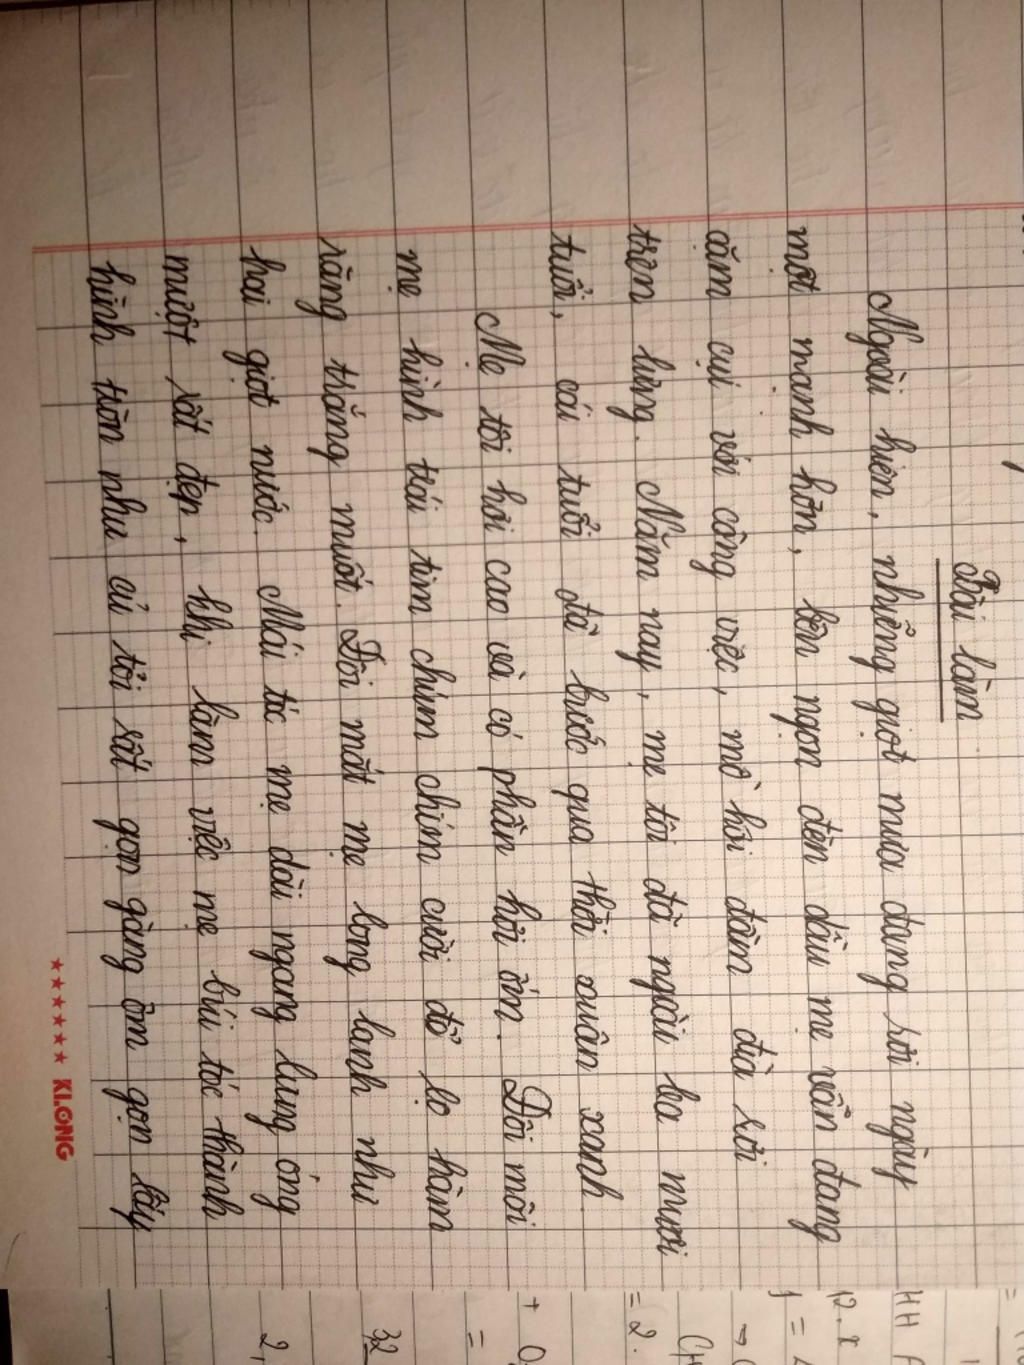 Bài làm
Ngoài hiên, những giọt mưa đang rơi ngày
một mạnh hơn, bên ngọn đèn dầu mẹ vẫn đang
cặm cụi với công việc, mồ hôi đầm đìa rơi
trên lưng. Năm nay, mẹ tôi đã ngoài ba mươi
tuổi, cái tuổi đã bước qua thời xuân xanh.
Mẹ tôi hơi cao và có phần hơi ốm. Đôi môi
mẹ hình trái tim chúm chím cười để lộ hàm
răng trắng muốt. Đôi mắt mẹ long lanh như
hai giọt nước. Mái tóc mẹ dài ngang lưng óng
mượt rất đẹp, khi làm việc mẹ búi tóc thành
hình tròn như củ tỏi rất gọn gàng ôm gọn lấy
★★★★★★★ KLONG
HH
12.x
1 =
CH
= 2.
+ 0
=
32
2,